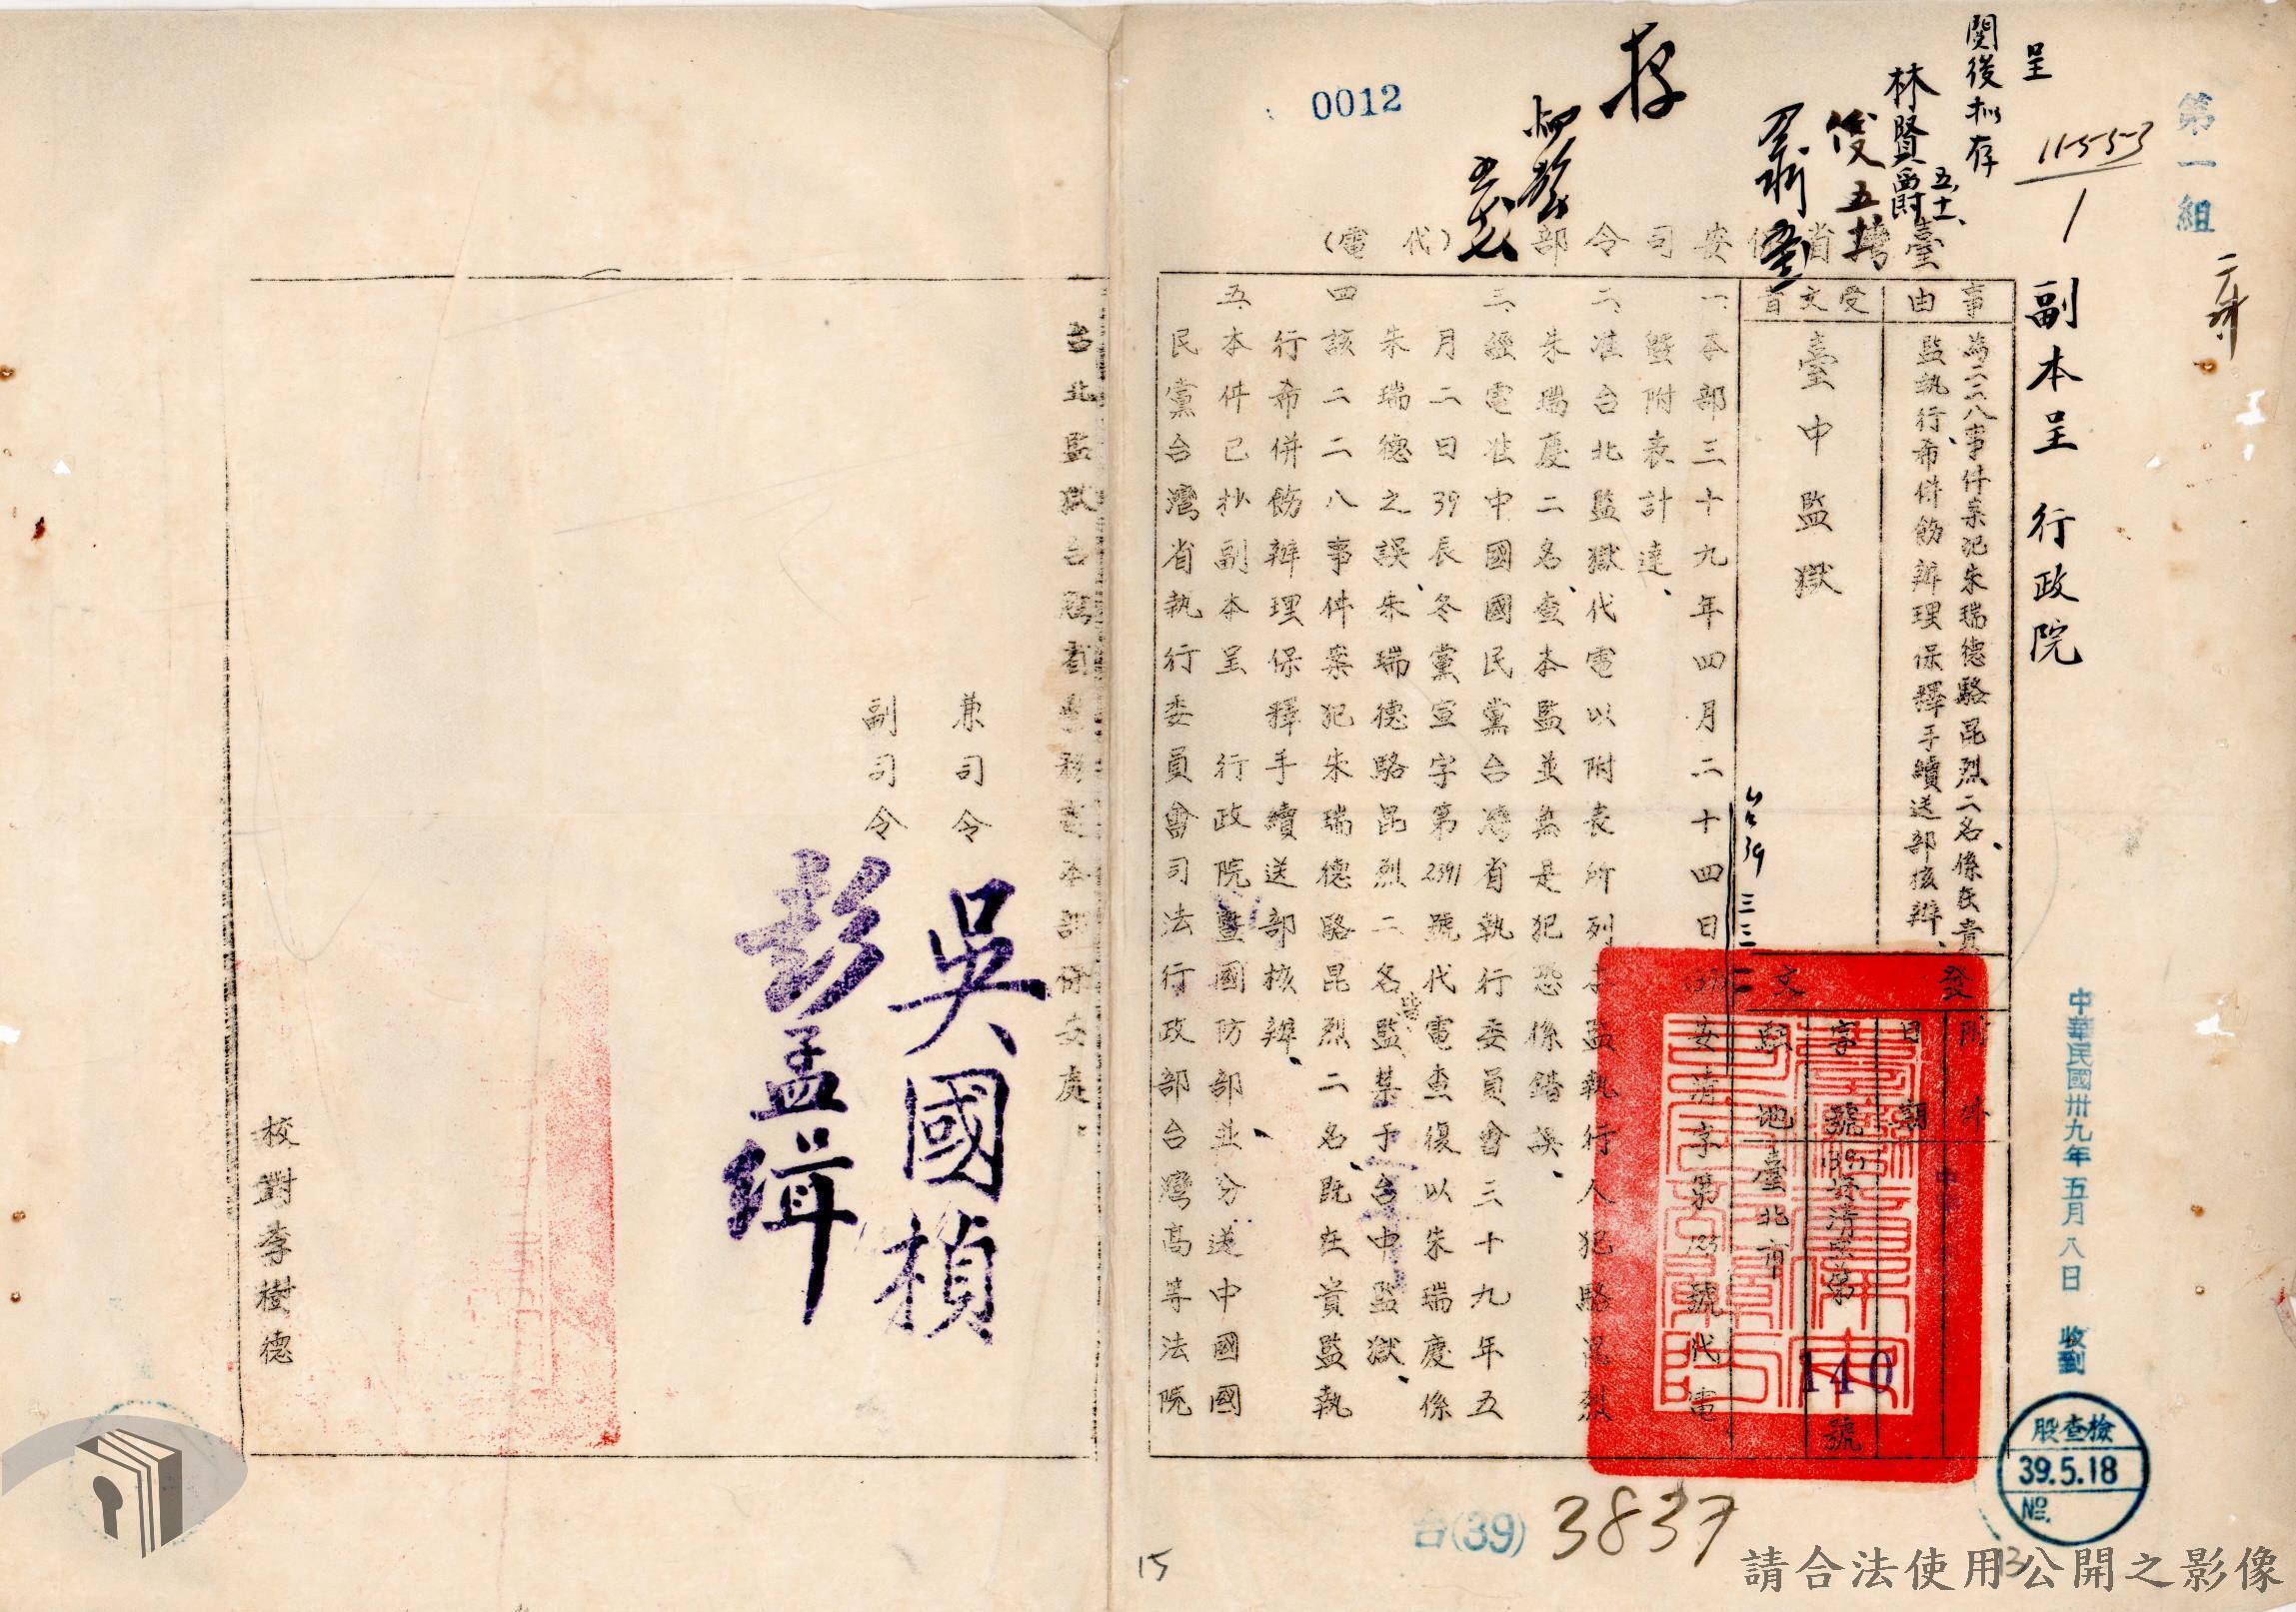 第一組
呈
11-5-5-3
1
閱後擬存
林賢爵
存
0012
副本呈 行政院
臺灣省保安司令部(代電)
事由
為二二八事件案犯朱瑞德駱昆烈二名、係在貴
監執行、希併飭辦理保釋手續送部核辦、
受文者
臺中監獄
發文
附件
日期
字號
(39)安清字第140號
駐地
臺北市
一、本部三十九年四月二十四日(39)安清字第 號代電
暨附表計達、
二、准台北監獄代電以附表所列本監執行人犯駱昆烈
朱瑞慶二名、查本監並無是犯恐係錯誤、
三、經電准中國國民黨台灣省執行委員會三十九年五
月二日39辰冬黨宣字第2391號代電查復以朱瑞慶係
朱瑞德之誤、朱瑞德駱昆烈二名皆監禁于台中監獄、
四、該二二八事件案犯朱瑞德駱昆烈二名、既在貴監執
行希併飭辦理保釋手續送部核辦、
五、本件已抄副本呈 行政院暨國防部並分送中國國
民黨台灣省執行委員會司法行政部台灣高等法院
兼司令 吳國楨
副司令 彭孟緝
校對李樹德
中華民國卅九年五月八日 收到
檢查股
39.5.18
№.
台(39) 3837
15
13
請合法使用公開之影像